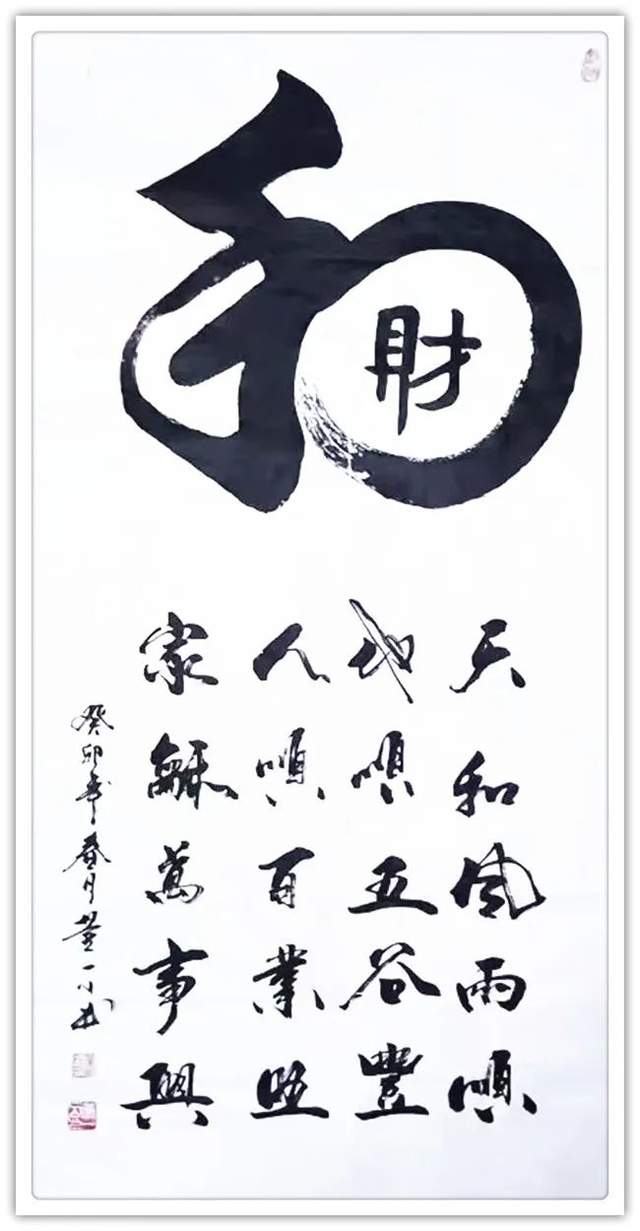 和
財
天和風雨順
地順五谷豐
人順百業旺
家龢萬事興
癸卯年春月